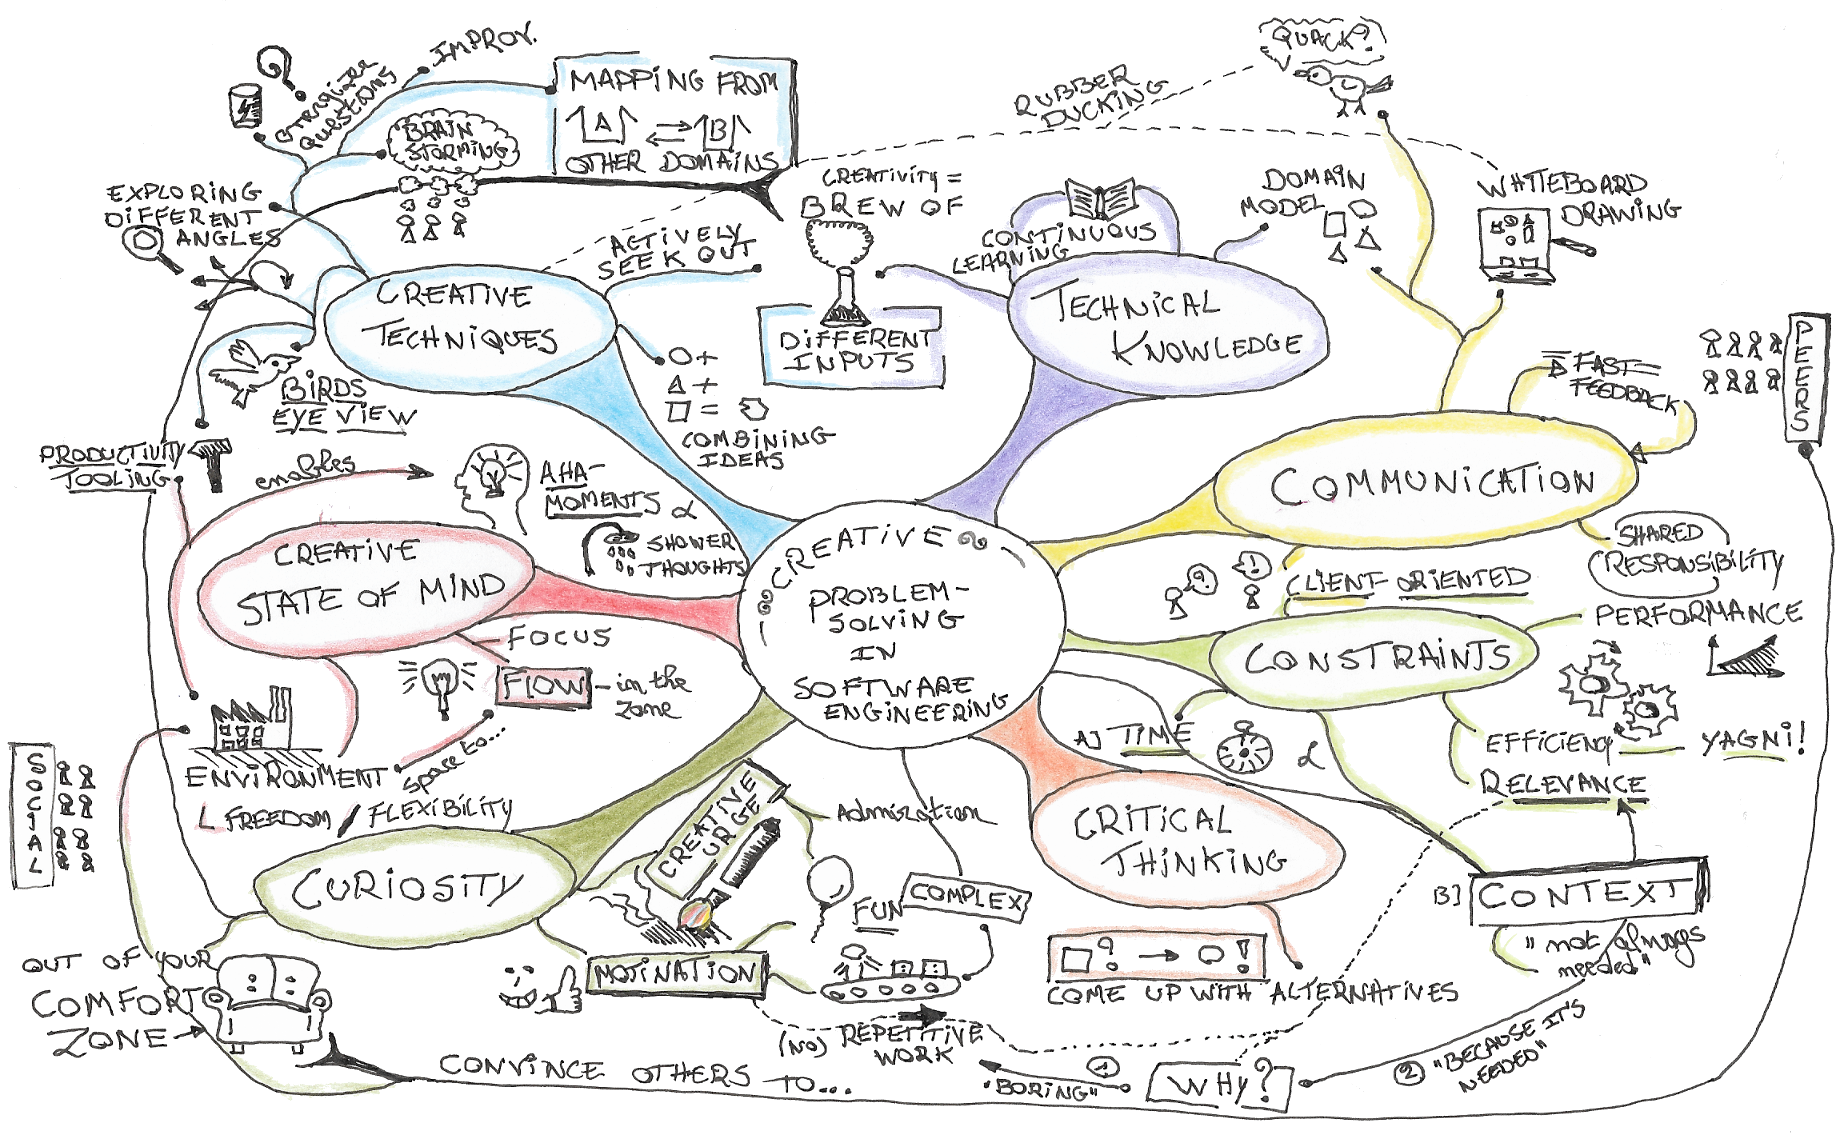 QUACK?
IMPROV.
ENERGIZER
QUESTIONS
MAPPING FROM
A B
OTHER DOMAINS
BRAIN
STORMING
RUBBER
DUCKING
EXPLORING
DIFFERENT
ANGLES
CREATIVITY =
BREW OF
DIFFERENT
INPUTS
ACTIVELY
SEEK OUT
CONTINUOUS
LEARNING
DOMAIN
MODEL
WHITEBOARD
DRAWING
CREATIVE
TECHNIQUES
TECHNICAL
KNOWLEDGE
O +
Δ +
□ =
COMBINING
IDEAS
BIRDS
EYE VIEW
FAST
FEEDBACK
PEERS
PRODUCTIVITY
TOOLING
enables
AHA-
MOMENTS &
SHOWER
THOUGHTS
COMMUNICATION
SHARED
RESPONSIBILITY
CREATIVE
STATE OF MIND
CREATIVE
PROBLEM-
SOLVING
IN
SOFTWARE
ENGINEERING
? !
CLIENT-ORIENTED
CONSTRAINTS
PERFORMANCE
FOCUS
FLOW - in the
zone
space to...
ENVIRONMENT
FREEDOM / FLEXIBILITY
SOCIAL
A) TIME &
EFFICIENCY YAGNi!
RELEVANCE
B) CONTEXT
"not always
needed"
CRITICAL
THINKING
□? → O!
COME UP WITH ALTERNATIVES
CURIOSITY
CREATIVE
URGE
Admiration
FUN
COMPLEX
MOTIVATION
(NO) REPETITIVE
WORK
OUT OF YOUR
COMFORT
ZONE
CONVINCE OTHERS TO...
1
"BORING"
WHY?
2 "BECAUSE IT'S
NEEDED"